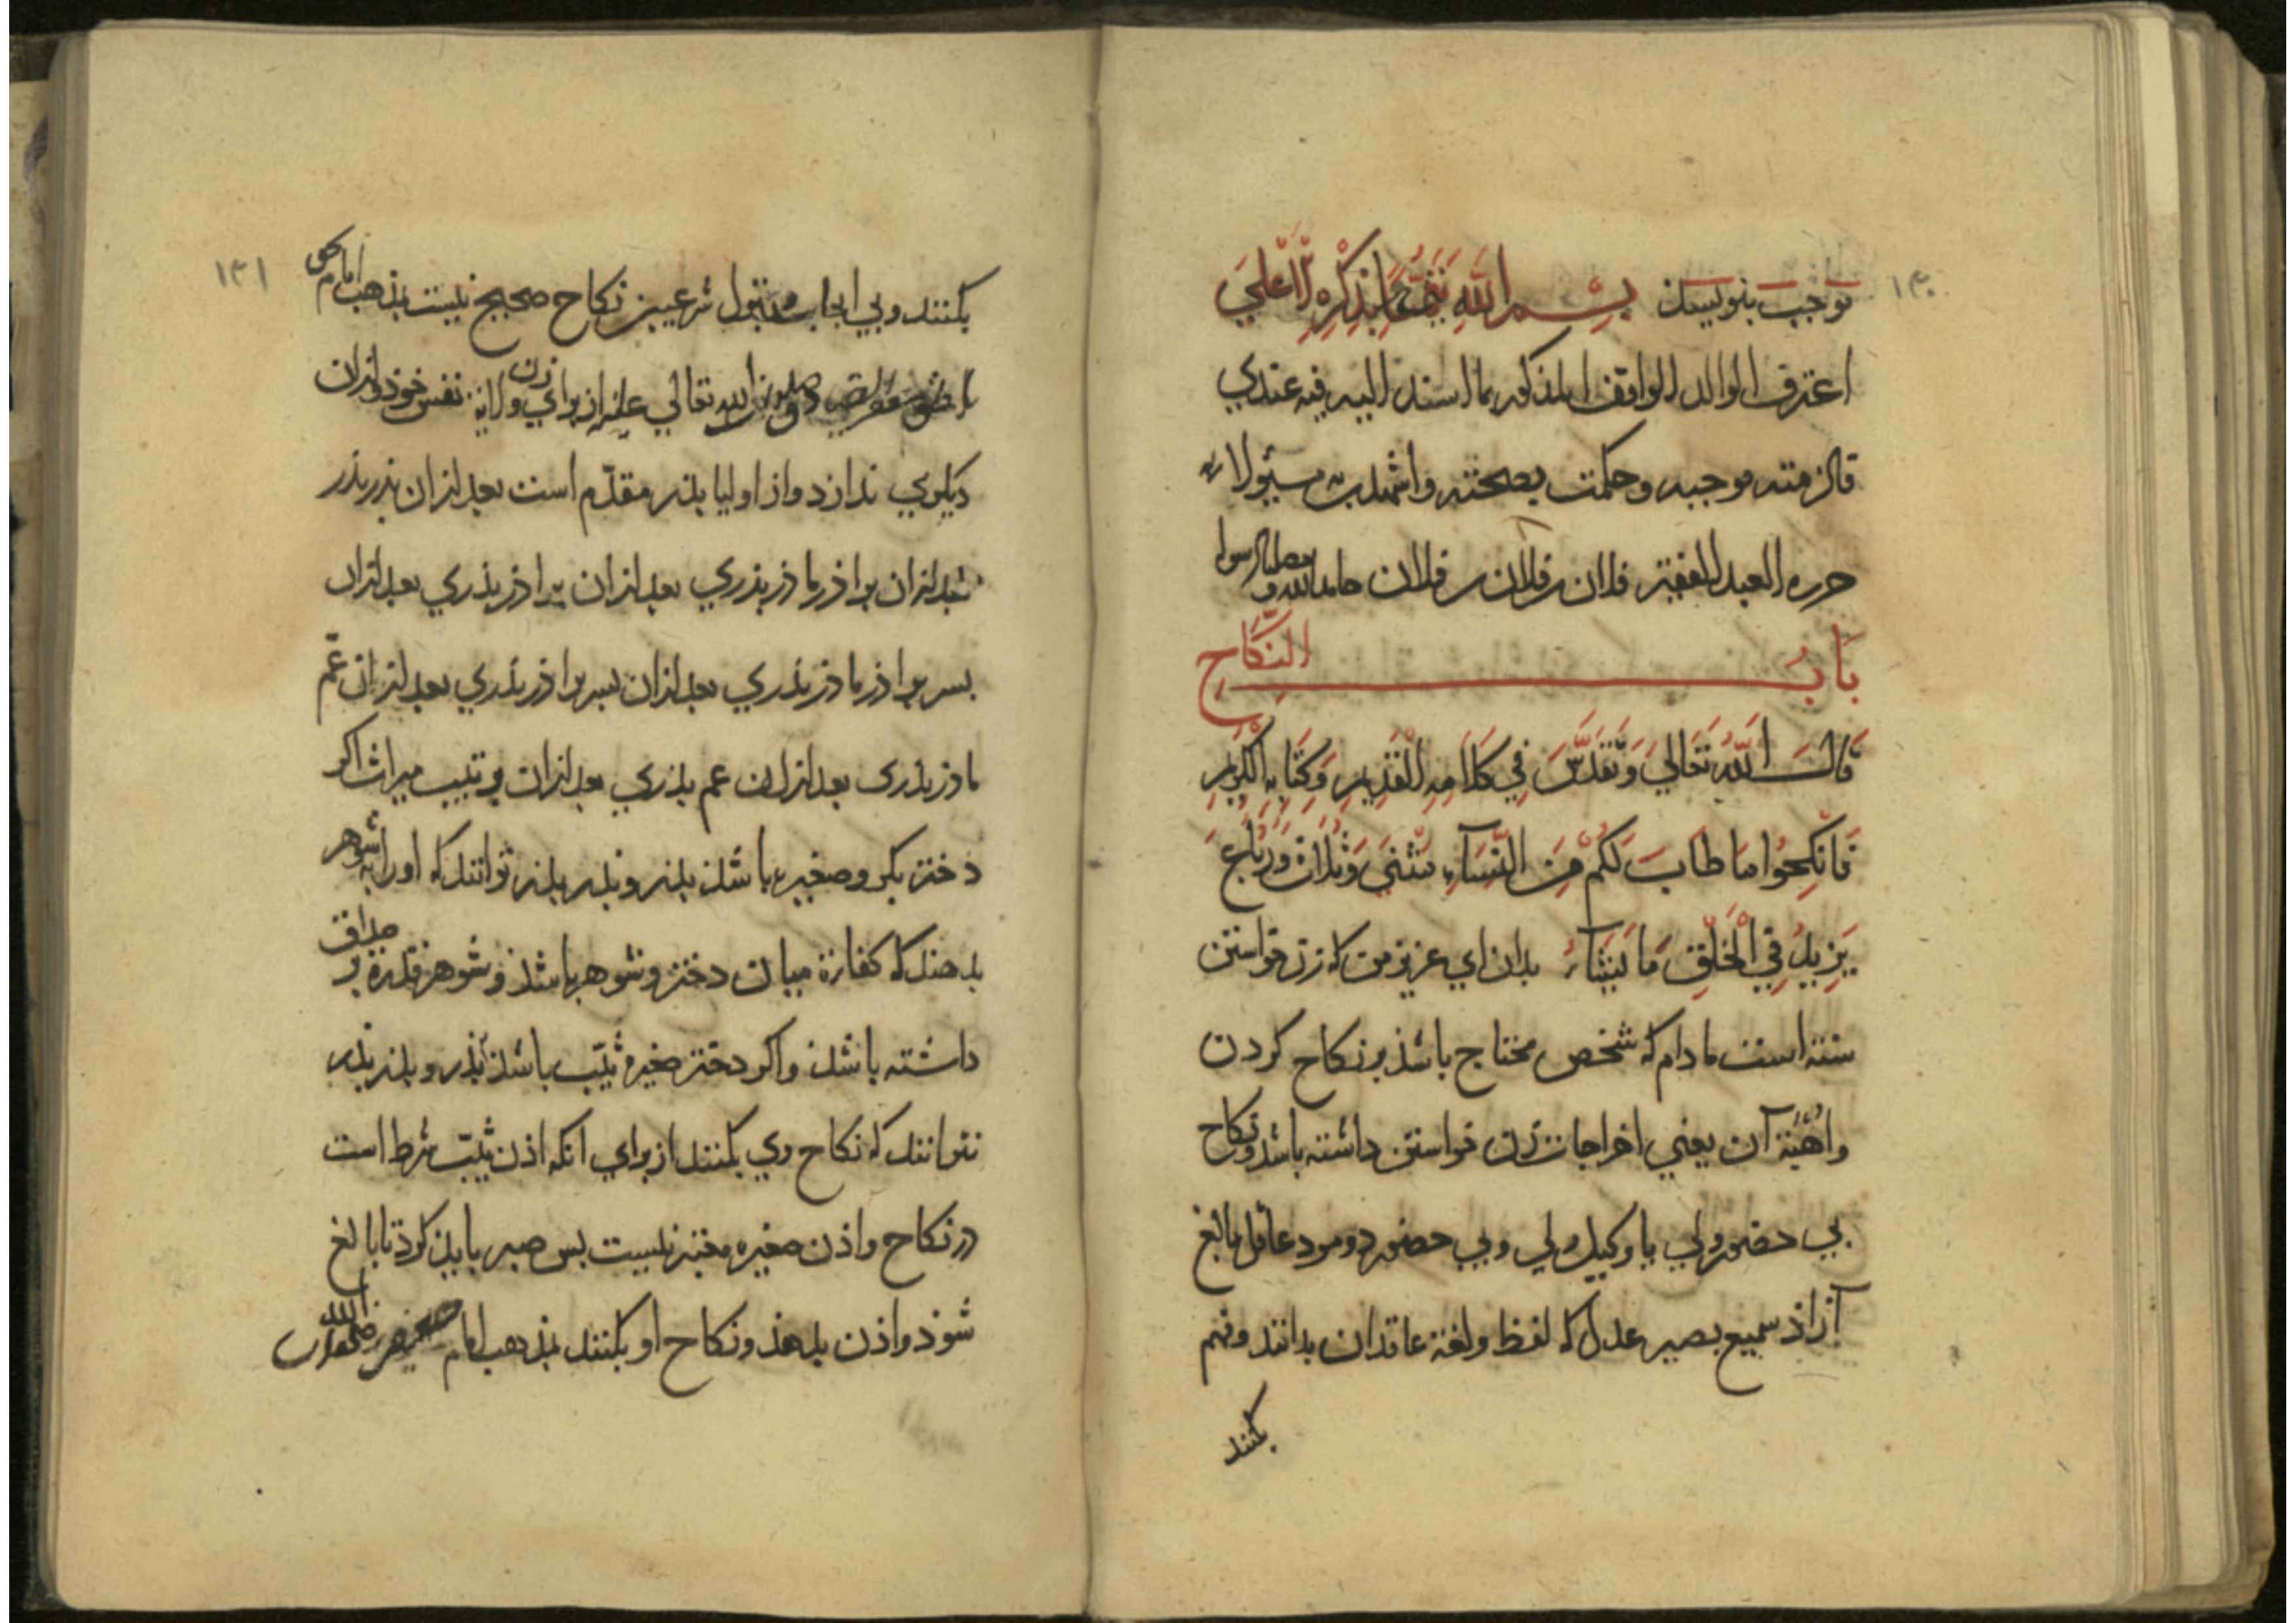 ۱۳۰
توجب بنویسند بسم الله تیمنا بذکره الاعلی
اعترف الوالد الواقف المذکور بما اسند الیه فیه عندی
فالزمته موجبه وحکمت بصحته واشهدت به مسئولا
حرره العبد الفقیر فلان بن فلان بن فلان حامدا لله و مصلیا لرسوله
بَابُ النِّکَاحِ
قَالَ اللهُ تَعَالَی وَتَقَدَّسَ فِی کَلَامِهِ الْقَدِیمِ وَکِتَابِهِ الْکَرِیمِ
فَانْکِحُوا مَا طَابَ لَکُمْ مِنَ النِّسَآءِ مَثْنَی وَثُلَاثَ وَرُبَاعَ
یَزِیدُ فِی الْخَلْقِ مَا یَشَآءُ بدان ای عزیز من که زن خواستن
سنته است مادام که شخص محتاج باشذ بر نکاح کردن
واُهْبَة آن یعنی اخراجات زن خواستن داشته باشد ونکاح
بی حضور ولی یا وکیل ولی وبی حضور دو مرد عاقل بالغ
آزاذ سمیع بصیر عدل که لفظ ولغة عاقدان بدانند وفهم
بکنند
۱۳۱
بکنند وبی ایجاب وقبول شرعیین نکاح صحیح نیست بمذهب امام
الله تعالی علیه از برای زن ولایة نفس خوذ وازان
دیکری ندارد واز اولیا بذر مقدّم است بعد ازان بذر بذر
بعد ازان براذر ماذر بذری بعد ازان براذر بذری بعد ازان
بسر براذر ماذر بذری بعد ازان بسر براذر بذری بعد ازان عمّ
ماذر بذری بعد ازان عم بذری بعد ازان بر تیب میراث اکر
دختر بکر وصغیره باشذ بذر وبذر بذر توانند که اورا بشوهر
بدهند که کفاءة میان دختر وشوهر باشذ وشوهر قدرة بر صداق
داشته باشذ واکر دختر صغیره ثیّب باشذ بذر وبذر بذر
نتوانند که نکاح وی بکنند از برای انکه اذن ثیّب شرط است
در نکاح واذن صغیره معتبر نیست بس صبر بایذ کرد تا بالغ
شوذ واذن بدهذ ونکاح او بکنند بمذهب امام